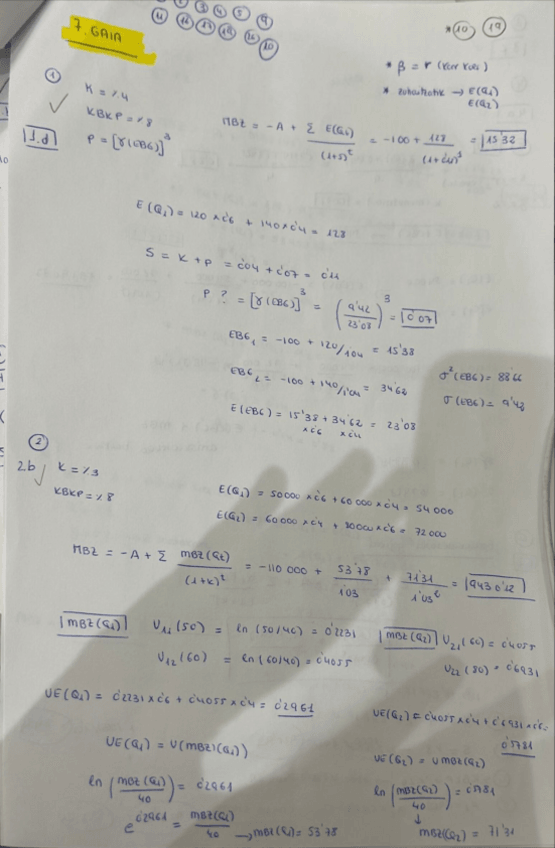 7. GAIA
3 4 5 9
11
* 10 19
* β = r (korr koef)
* zubaitzatik → E(Q1)
E(Q2)
1
K = %4
KBKP = %8
1.d P = [γ(EBG)]³
MBZ = -A + Σ E(Qi) / (1+s)^t = -100 + 128 / (1+0'11)¹ = 15'32
E(Q1) = 120 x 0'6 + 140 x 0'4 = 128
S = K + P = 0'04 + 0'07 = 0'11
P? = [γ(EBG)]³ = (9'42 / 23'08)³ = 0'07
EBG1 = -100 + 120/1'04 = 15'38
EBG2 = -100 + 140/1'04 = 34'62
σ²(EBG) = 88'66
σ(EBG) = 9'42
E(EBG) = 15'38 + 34'62 = 23'08
x0'6 x0'4
2
2.b K = %3
KBKP = %8
E(Q1) = 50000 x 0'6 + 60000 x 0'4 = 54000
E(Q2) = 60000 x 0'4 + 80000 x 0'6 = 72000
MBZ = -A + Σ MBZ(Qt) / (1+K)^t = -110 000 + 53'78 / 1'03 + 71'31 / 1'03² =
MBZ(Q1) U11(50) = ln(50/40) = 0'2231
U12(60) = ln(60/40) = 0'4055
MBZ(Q2) U21(60) = 0'4055
U22(80) = 0'6931
UE(Q1) = 0'2231 x 0'6 + 0'4055 x 0'4 = 0'2961
UE(Q2) = 0'4055 x 0'4 + 0'6931 x 0'6
0'5781
UE(Q1) = U(MBZ(Q1))
UE(Q2) = U MBZ(Q2)
ln(MBZ(Q1) / 40) = 0'2961
ln(MBZ(Q2) / 40) = 0'5781
e^0'2961 = MBZ(Q1) / 40 → MBZ(Q1) = 53'78
↓
MBZ(Q2) = 71'31